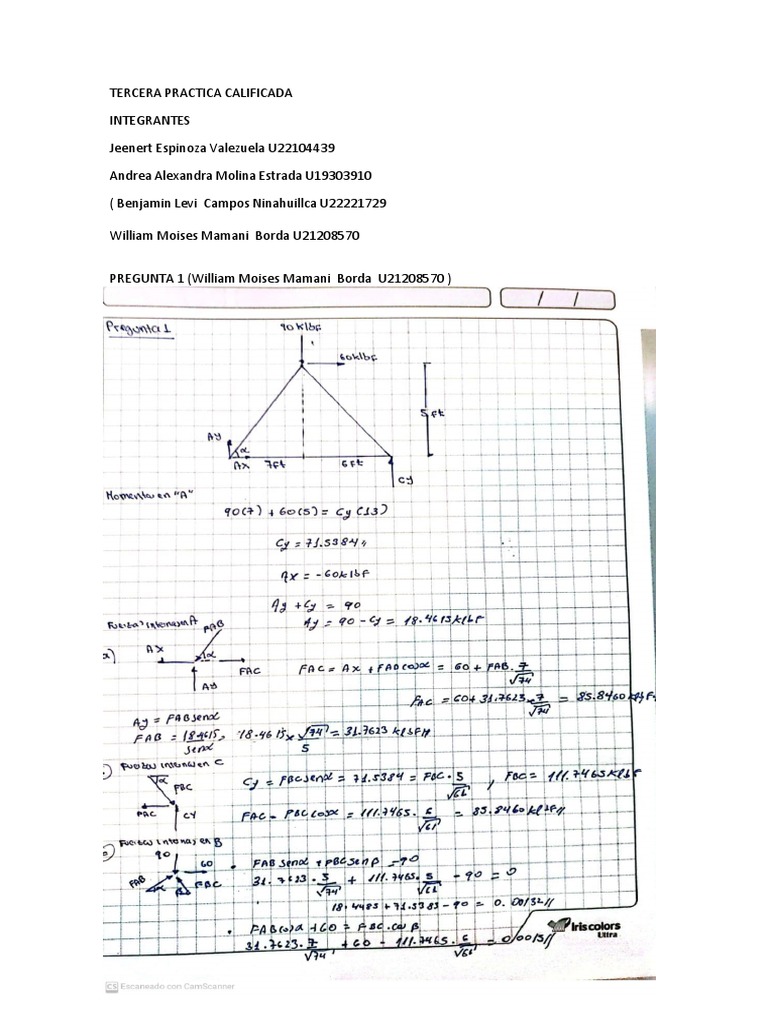 TERCERA PRACTICA CALIFICADA
INTEGRANTES
Jeenert Espinoza Valezuela U22104439
Andrea Alexandra Molina Estrada U19303910
( Benjamin Levi Campos Ninahuillca U22221729
William Moises Mamani Borda U21208570
PREGUNTA 1 (William Moises Mamani Borda U21208570 )
Pregunta 1
90 klbf
60klbf
5 ft
Ay
α
Ax 7ft 6ft
Cy
Momento en "A"
90(7) + 60(5) = Cy(13)
Cy = 71.5384
Ax = -60klbf
Ay + Cy = 90
Ay = 90 - Cy = 18.4615klbf
Fuerzas internas A
FAB
Ax α FAC
Ay
FAC = Ax + FABcosα = 60 + FAB. 7/√74
FAC = 60 + 31.7623 × 7/√74 = 85.8460 klbf
Ay = FABsenα
FAB = 18.4615/senα = 18.4615 × √74/5 = 31.7623 klbf
Fuerzas internas en C
α FBC
FAC CY
Cy = FBCsenα = 71.5384 = FBC. 5/√61 , FBC = 111.7465klbf
FAC = FBCcosα = 111.7465. 6/√61 = 85.8460klbf
Fuerzas internas en B
90 60
FAB α β FBC
• FABsenα + FBCsenβ = 90
31.7623. 5/√74 + 111.7465. 5/√61 - 90 = 0
18.4485 + 71.5383 - 90 = 0.00132
• FABcosα + 60 = FBC.cosβ
31.7623. 7/√74 + 60 - 111.7465. 6/√61 = 0.0013
Iriscolors
Ultra
CS Escaneado con CamScanner